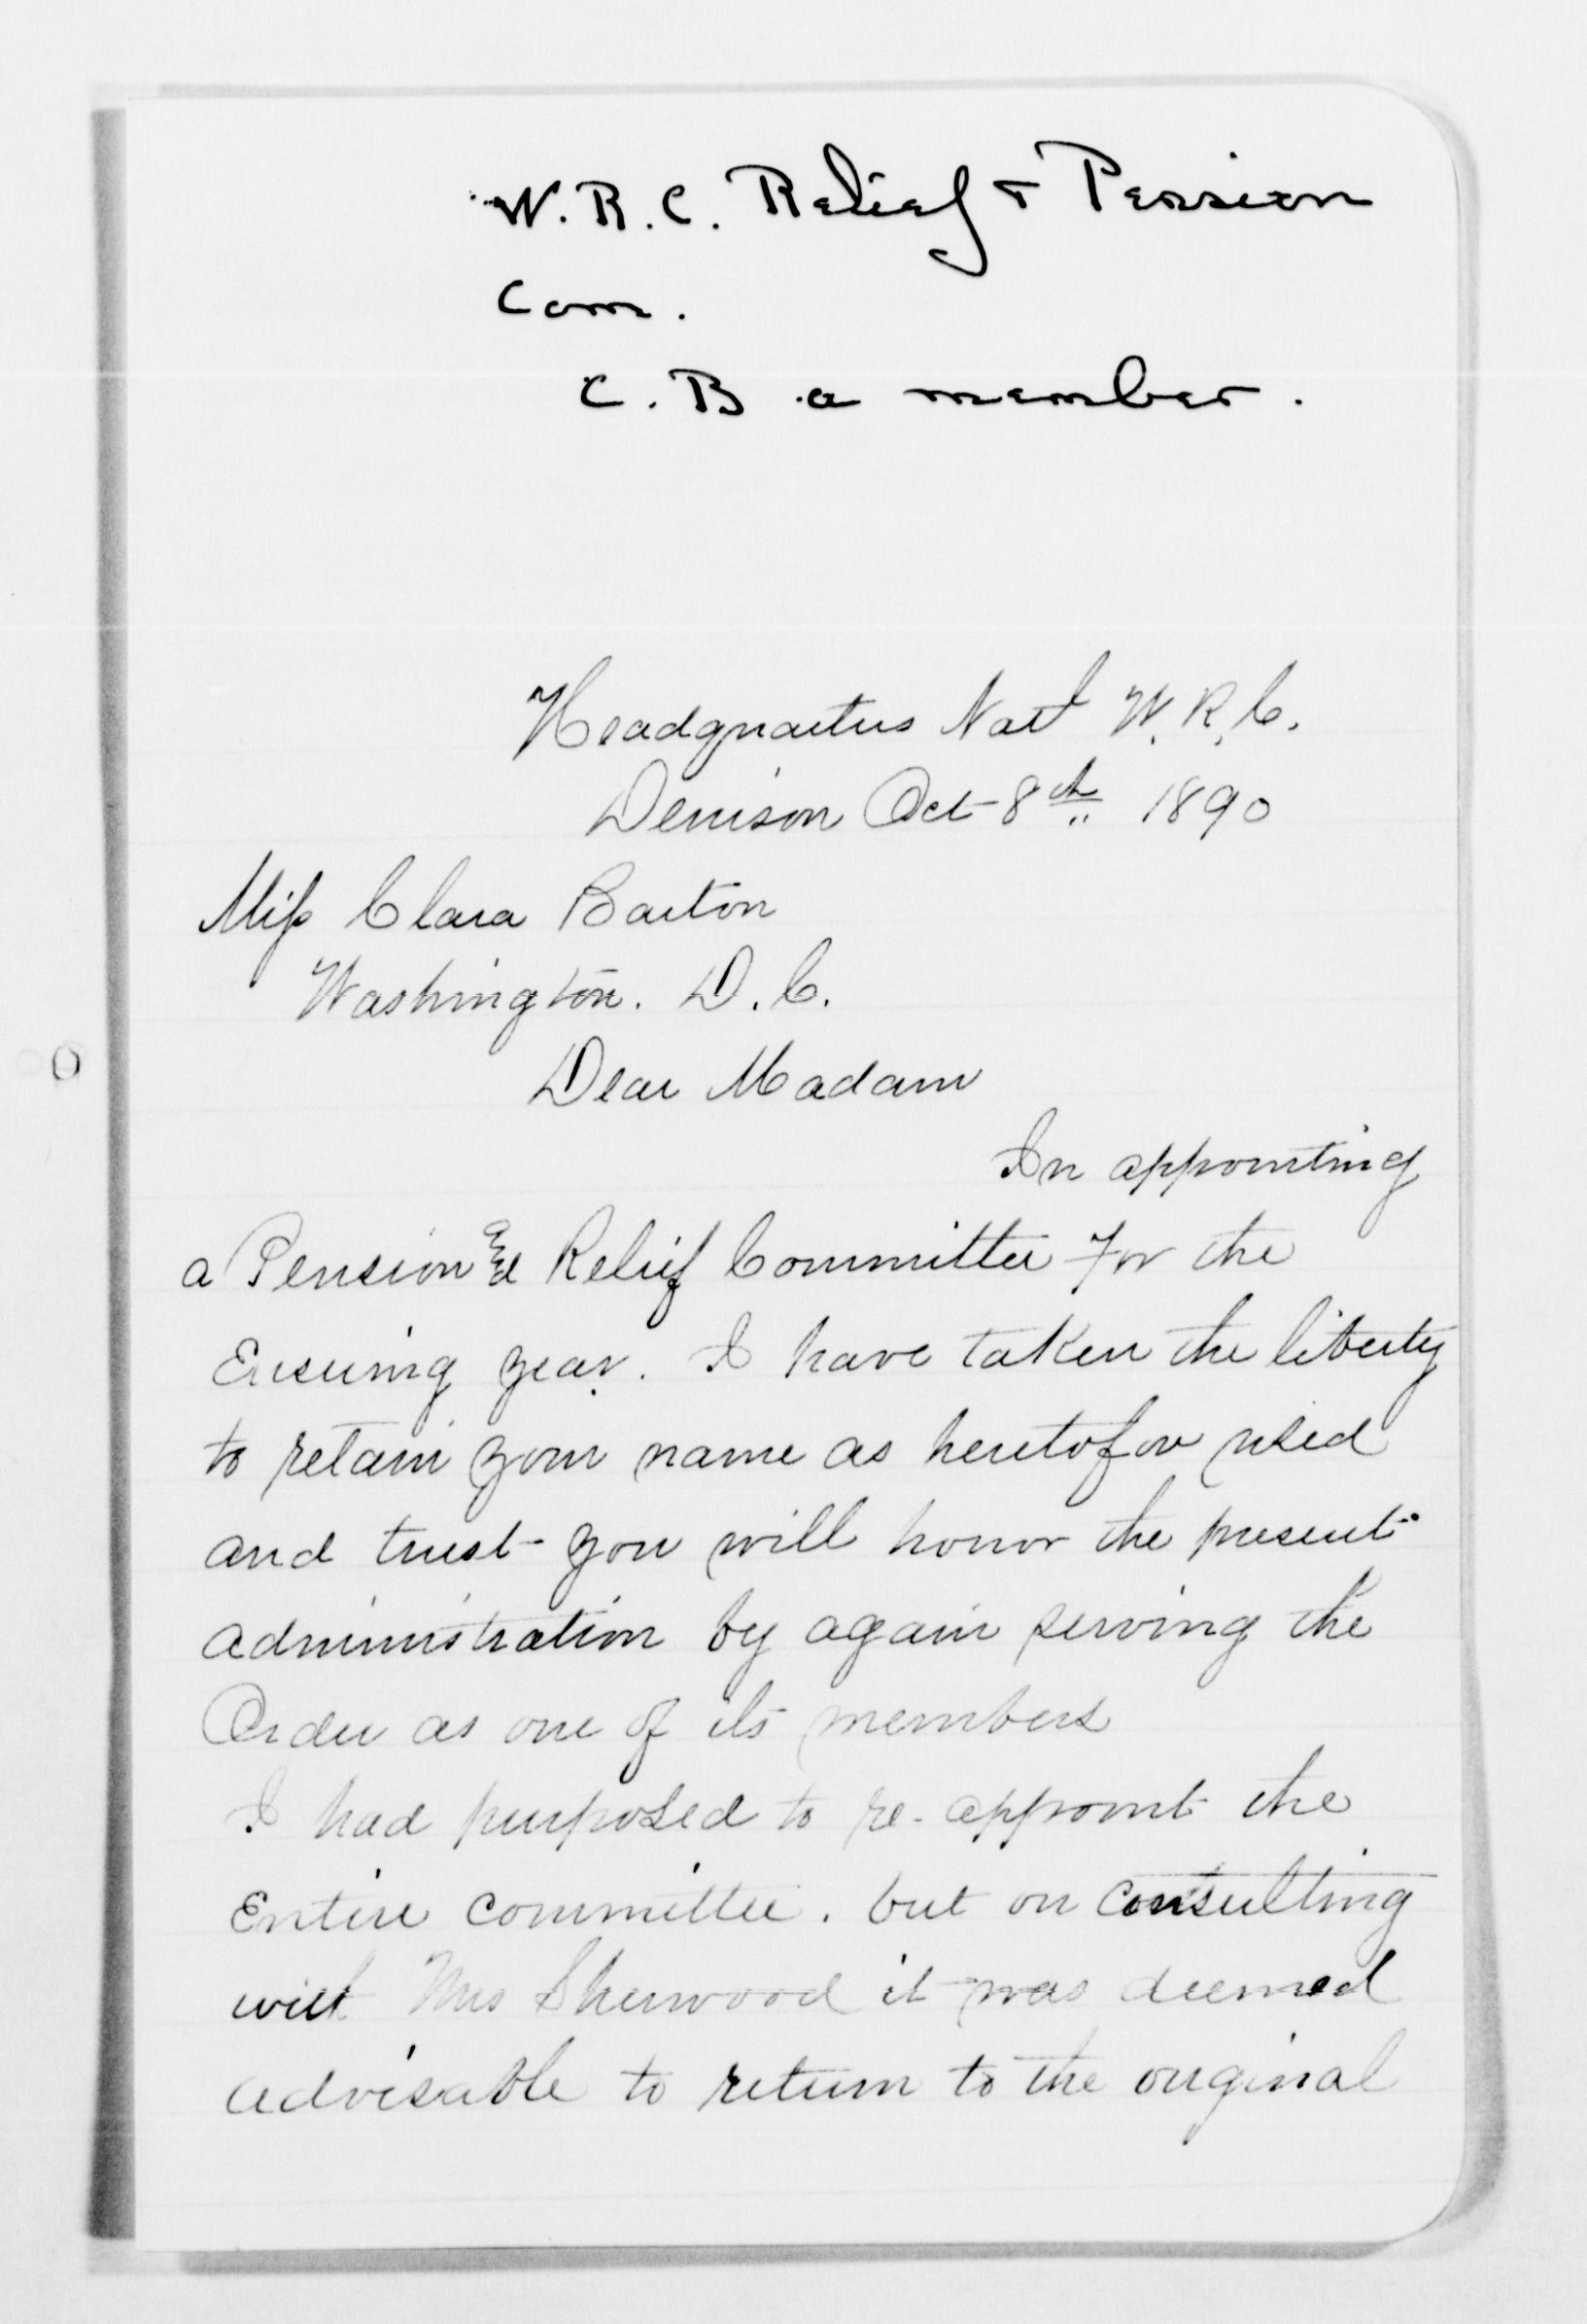 W. R. C. Relief & Pension
Com.
C. B a member.
Headquarters Nat'l W. R. C.
Denison Oct 8th 1890
Miss Clara Barton
Washington. D. C.
Dear Madam
In appointing
a Pension & Relief Committee for the
Ensuing year. I have taken the liberty
to retain your name as heretofore used
and trust you will honor the present
administration by again serving the
Order as one of its members
I had purposed to re-appoint the
Entire committee. but on consulting
with Mrs Sherwood it was deemed
advisable to return to the original